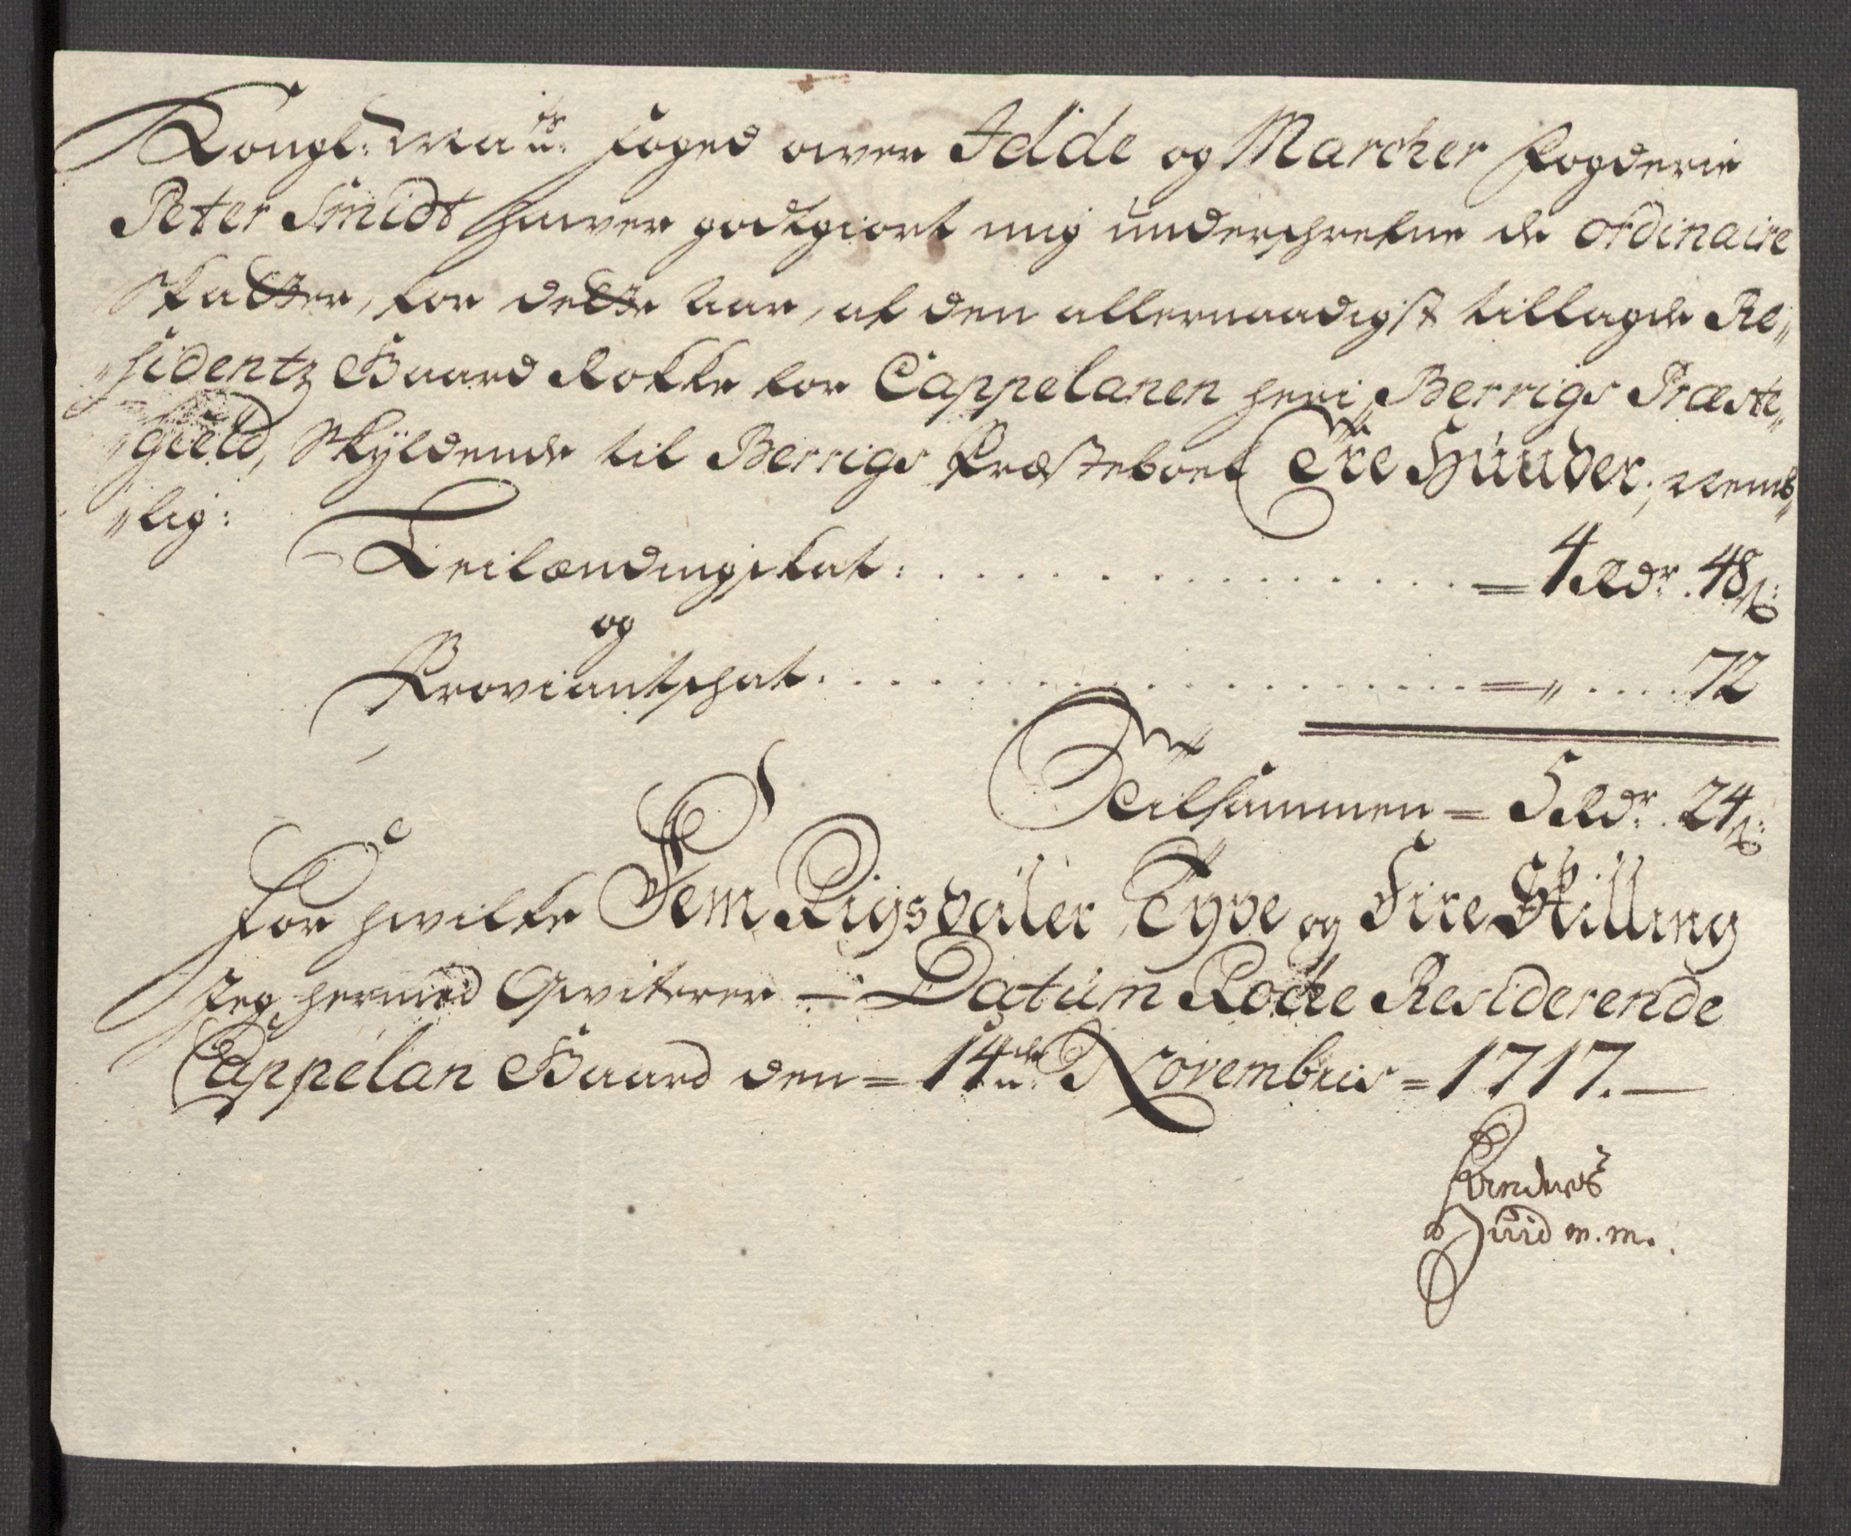 Kongl: Maÿtz: Foged ower Idde og Marcher Fogderie
Peter Smidt hawer godtgiort mig underschrefne de ordinaire
Skatter, for dette Aar, af den allernaadigst tillagde Re„
„sidentz Gaard Rokke for Cappelanen heri Berrigs Præste„
„gield, Skyldende til Berrigs Præsteboel Tre Huuder, nemb„
„lig:
Leilændingskat: = 4 Rdr. 48 ß:
og
Proviantschat. = „ 72
Tilsammen = 5 Rdr. 24 ß:
For hwilke Fem Rigsdaler Tyve og Fire Skilling
Jeg hermed Qwiterer — Datum Rocke Residerende
Cappelan Gaard den = 14de Novembris = 1717. —
Anders
Juid m. m.